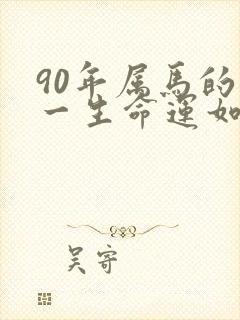 90年属马的
一生命运如
吴寄